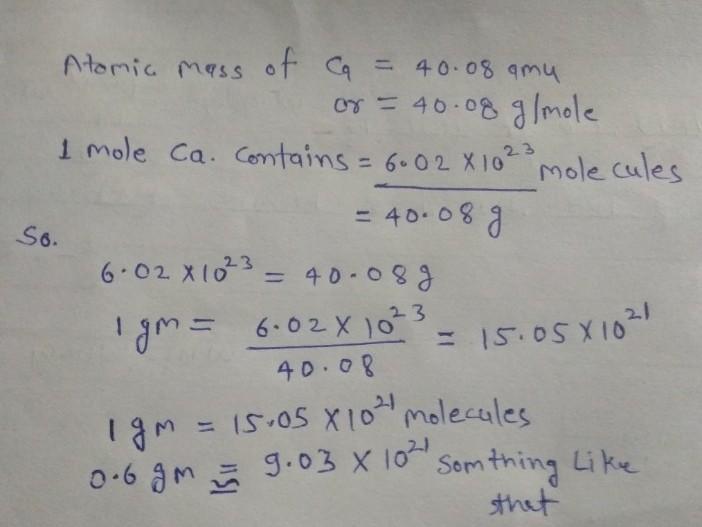 Atomic mass of Ca = 40.08 amu
or = 40.08 g/mole
1 mole Ca. Contains = 6.02 X 10²³ molecules
= 40.08 g
So.
6.02 X 10²³ = 40.08 g
1 gm = 6.02 X 10²³ / 40.08 = 15.05 X 10²¹
1 gm = 15.05 X 10²¹ molecules
0.6 gm ≅ 9.03 X 10²¹ Somthing Like
that